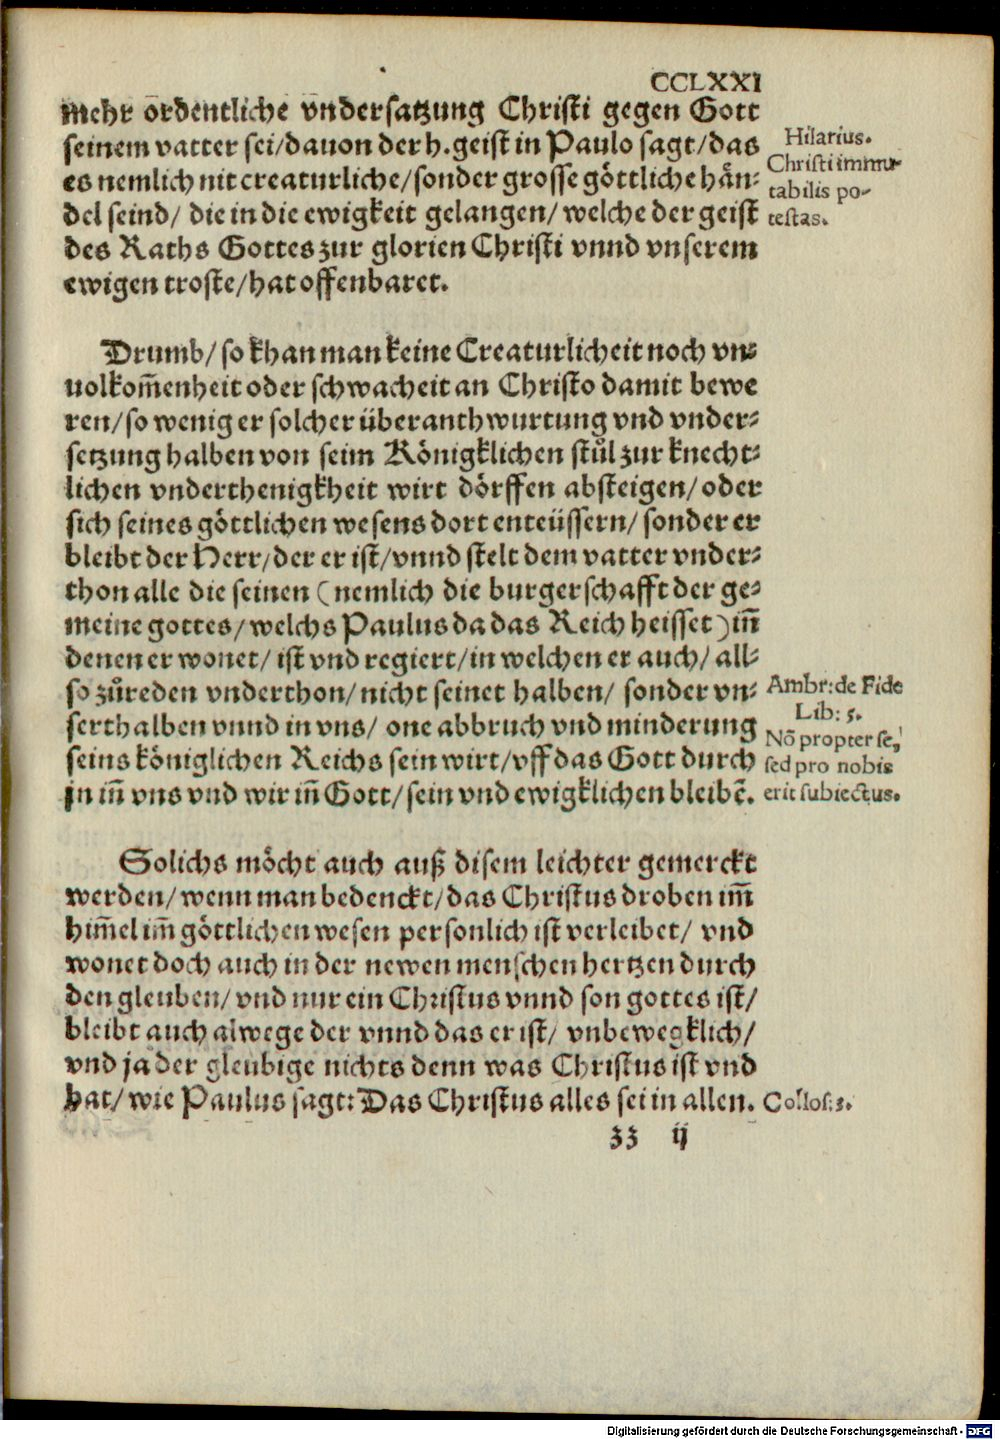 CCLXXI
mehr ordentliche vndersatzung Christi gegen Gott
seinem vatter sei/dauon der h. geist in Paulo sagt/das
es nemlich nit creaturliche/sonder grosse göttliche hän⸗
del seind/ die in die ewigkeit gelangen/ welche der geist
des Raths Gottes zur glorien Christi vnnd vnserem
ewigen troste/hat offenbaret.
Hilarius.
Christi immu⸗
tabilis po⸗
testas.
Drumb/so khan man keine Creaturlicheit noch vn⸗
uolkom̃enheit oder schwacheit an Christo damit bewe
ren/so wenig er solcher überanthwurtung vnd vnder⸗
setzung halben von seim Königklichen stůl zur knecht⸗
lichen vnderthenigkheit wirt dörffen absteigen/oder
sich seines göttlichen wesens dort enteüssern/ sonder er
bleibt der Herr/der er ist/vnnd stelt dem vatter vnder⸗
thon alle die seinen (nemlich die burgerschafft der ge⸗
meine gottes/welchs Paulus da das Reich heisset) iñ
denen er wonet/ ist vnd regiert/in welchen er auch/ all⸗
so zů reden vnderthon/nicht seinet halben/ sonder vn⸗
serthalben vnnd in vns/ one abbruch vnd minderung
seins königlichen Reichs sein wirt/vff das Gott durch
jn iñ vns vnd wir iñ Gott/sein vnd ewigklichen bleibẽ.
Ambr: de Fide
Lib: 5.
Nõ propter se,
sed pro nobis
erit subiectus.
Solichs möcht auch auß disem leichter gemerckt
werden/wenn man bedenckt/das Christus droben im̃
him̃el im̃ göttlichen wesen personlich ist verleibet/ vnd
wonet doch auch in der newen menschen hertzen durch
den gleuben/ vnd nur ein Christus vnnd son gottes ist/
bleibt auch alwege der vnnd das er ist/ vnbewegklich/
vnd ja der gleubige nichts denn was Christus ist vnd
hat/ wie Paulus sagt: Das Christus alles sei in allen.
Collos: 3.
zz ij
Digitalisierung gefördert durch die Deutsche Forschungsgemeinschaft - DFG